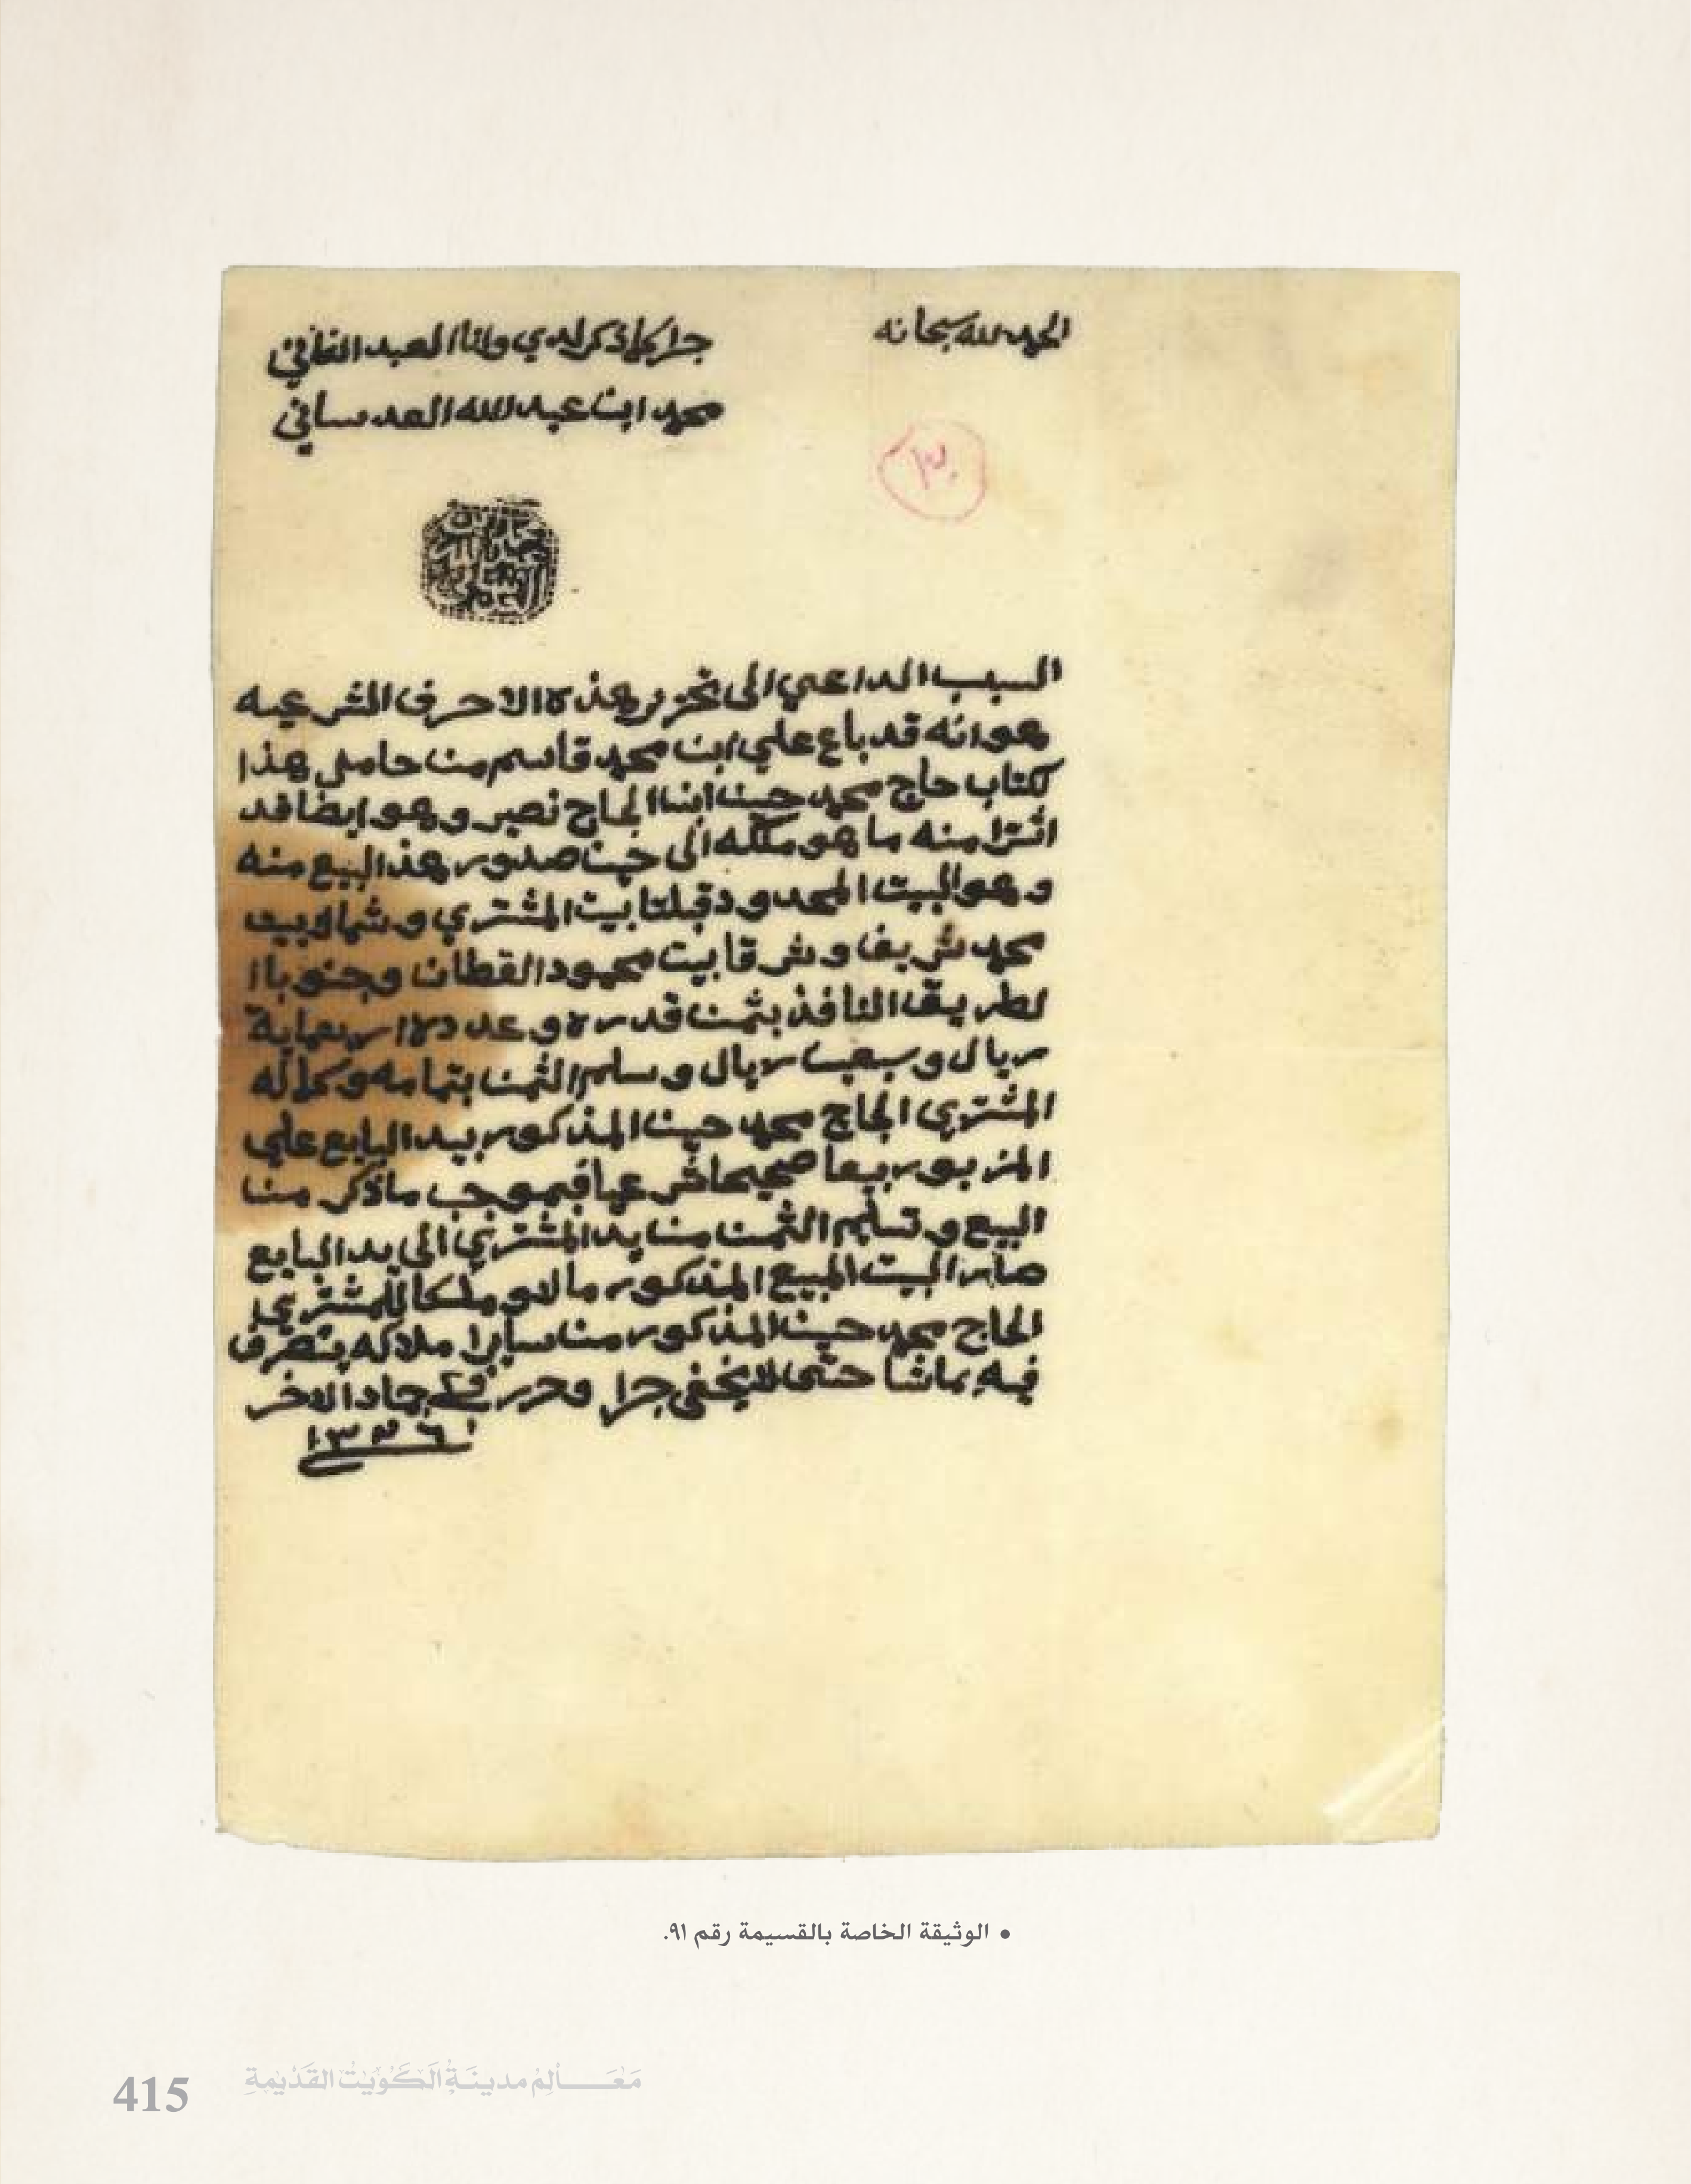 الحمد لله سبحانه
جرا كما ذكر لدي وانا العبد الفاني
محمد ابن عبد الله العدساني
٣٠
السبب الداعي الى تحرير هذه الاحرف الشرعيه
هو انه قد باع علي ابن محمد قاسم من حامل هذا
كتاب حاج محمد حسين ابن الحاج نصير وهو ايضا قد
اشترا منه ما هو ملكه الى حين صدور هذا البيع منه
وهو البيت المحدود قبلتا بيت المشتري وشمالا بيت
محمد شريف وشرقا بيت محمود القطان وجنوبا ا
لطريق النافذ بثمن قدره وعدده اربعماية
ريال وسبعين ريال وسلم الثمن بتمامه وكماله
المشتري الحاج محمد حسين المذكور بيد البايع علي
المزبور بيعا صحيحا شرعيا فبموجب ما ذكر من
البيع وتسليم الثمن من يد المشتري الى يد البايع
صار البيت المبيع المذكور مالا وملكا للمشتري
الحاج محمد حسين المذكور من ساير املاكه يتصرف
فيه بما شا حتى لا يخفى جرا وحرر في جماد الاخر
١٣٢٦
• الوثيقة الخاصة بالقسيمة رقم ٩١.
معالم مدينة الكويت القديمة
415